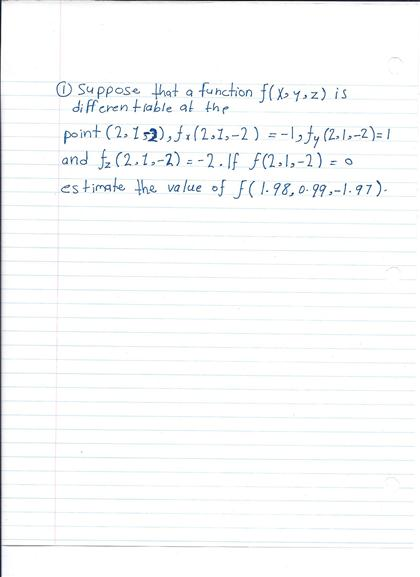 ① Suppose that a function f(x,y,z) is
differentiable at the
point (2,1,-2), fx(2,1,-2) = -1, fy(2,1,-2)=1
and fz(2,1,-2) = -2. If f(2,1,-2) = 0
estimate the value of f(1.98,0.99,-1.97).